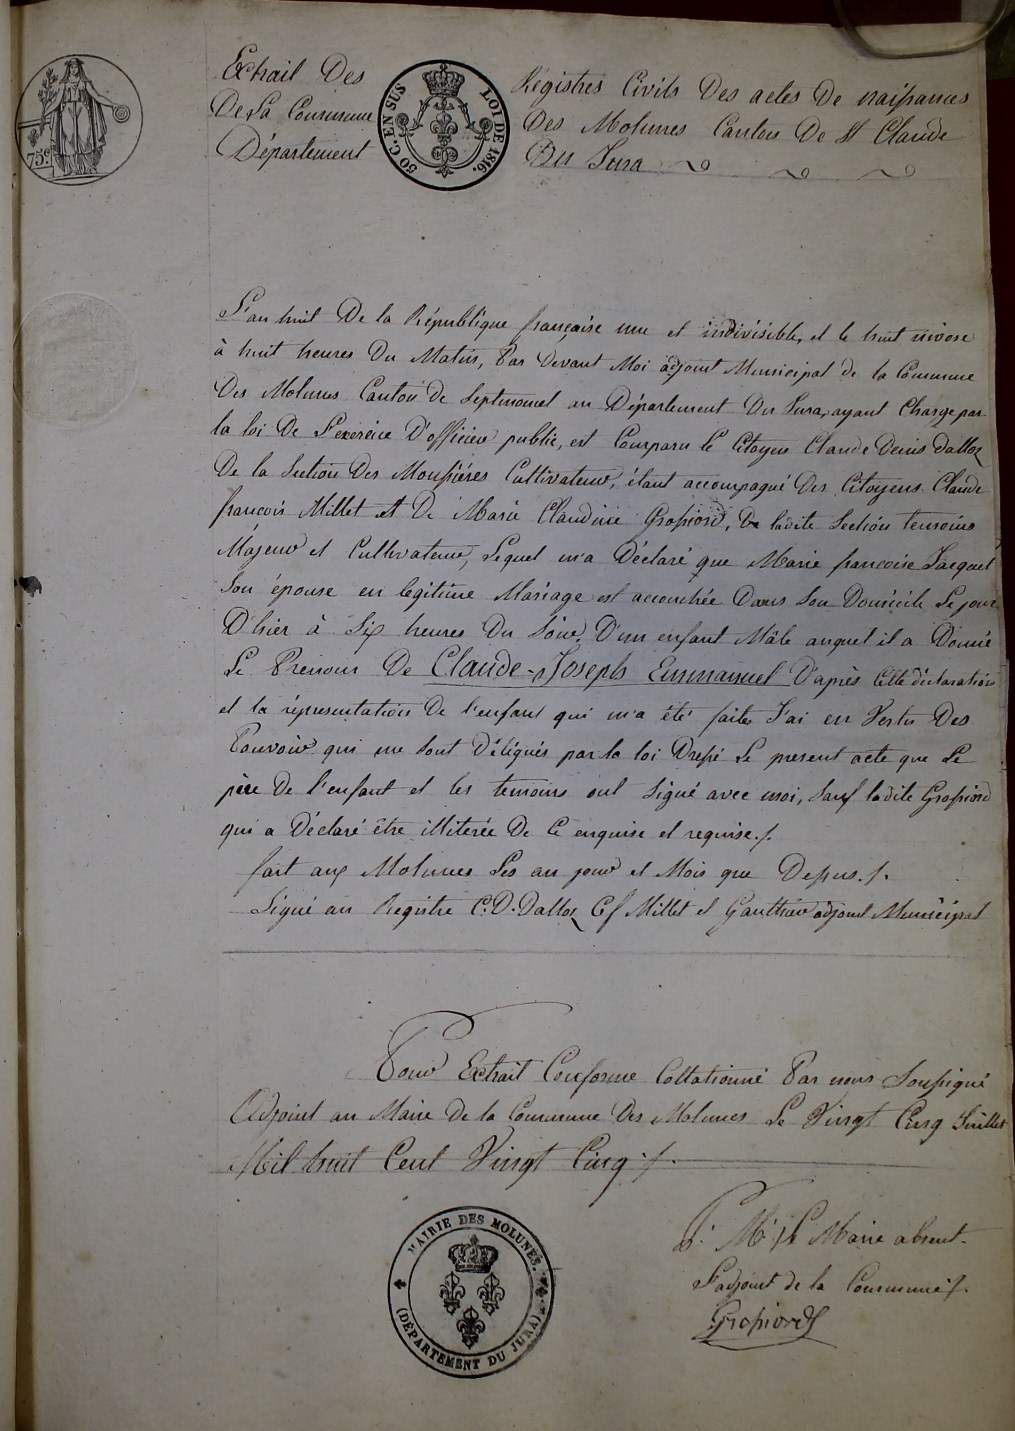 Extrait Des Régistres Civils Des actes De naissances
De La Commune Des Molunes Canton De St Claude
Département Du Jura
75c
50 C. EN SUS
LOI DE 1816.
L'an huit De la République française une et indivisible, et le huit nivose
à huit heures Du Matin, Par Devant Moi adjoint Municipal de la Commune
Des Molunes Canton de Septmoncel au Département Du Jura, ayant Charge par
la loi De L'exercice D'officier public, est Comparu le Citoyen Claude Denis Dalloz
De la Section Des Moussiéres Cultivateur, étant accompagné Des Citoyens Claude
françois Millet et De Marie Claudine Grossiord, De ladite Section temoins
Majeur et Cultivateur, Lequel m'a Déclaré que Marie francoise Jacquet
Son épouse en legitime Mariage est accouchée Dans Son Domicile Le jour
D'hier à Six heures Du Soir, D'un enfant Mâle auquel il a Donné
Le Prenom De Claude-Joseph Emmanuel D'après Cette déclaration
et la réprésentation De l'enfant qui m'a été faite J'ai en Vertu Des
Pouvoir qui me Sont Délégués par la loi Dressé Le present acte que Le
père De l'enfant et les temoins ont Signé avec moi, Sauf ladite Grossiord
qui a Déclaré être illiterée De Ce enquise et requise./.
fait aux Molunes Les an jour et Mois que Dessus./.
Signé au Registre C. D. Dalloz Cf Millet et Gauthier adjoint Municipal
Pour Extrait Conforme Collationné Par nous Soussigné
Adjoint au Maire De la Commune Des Molunes Le Vingt Cinq Juillet
Mil huit Cent Vingt Cinq ./.
P. Mr le Maire absent.
L'adjoint de la Commune /.
Grossiord
MAIRIE DES MOLUNES.
(DÉPARTEMENT DU JURA)